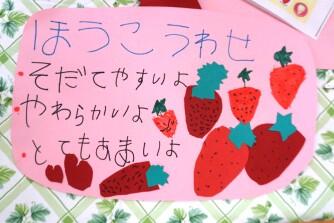 ほうこうわせ
そだてやすいよ
やわらかいよ
とてもあまいよ